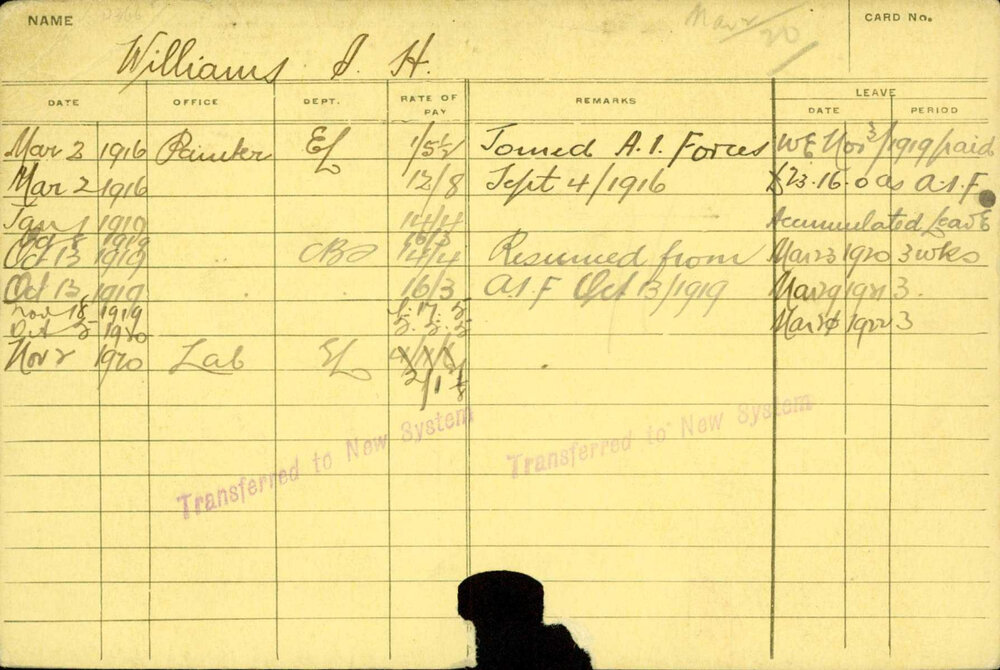 NAME
CARD No.
Mar 20
Williams J. H.
DATE OFFICE DEPT. RATE OF PAY REMARKS LEAVE DATE PERIOD
Mar 2 1916 Painter EL 1/5½ Joined A.I. Forces WE Nov 3/1919 paid
Mar 2 1916 12/8 Sept 4/1916 £23.16.0 as A.I.F
Jan 1 1919 14/4 Accumulated Leave
Oct 8 1919
Oct 13 1919 " 14/4 Resumed from Mar 23 1920 3 wks
Oct 13 1919 16/3 A.I.F Oct 13/1919 Mar 29 1921 3
Nov 18 1919
Oct 5 1920 Mar 1922 3
Nov 2 1920 Lab EL
2/1⅛
Transferred to New System
Transferred to New System